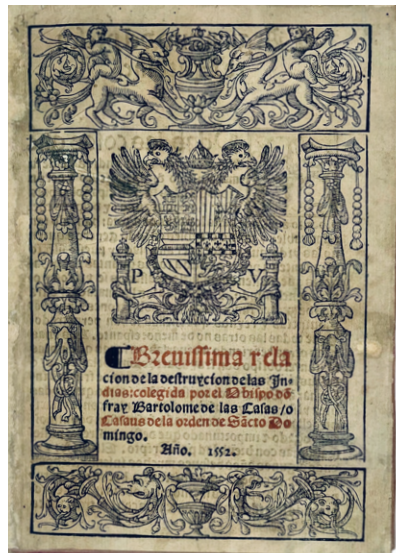 P V
Breuissima rela
cion de la destruycion de las Jn-
dias: colegida por el Obispo dõ
fray Bartolome de las Casas / o
Casaus de la orden de Sãcto Do
mingo.
Año. 1552.